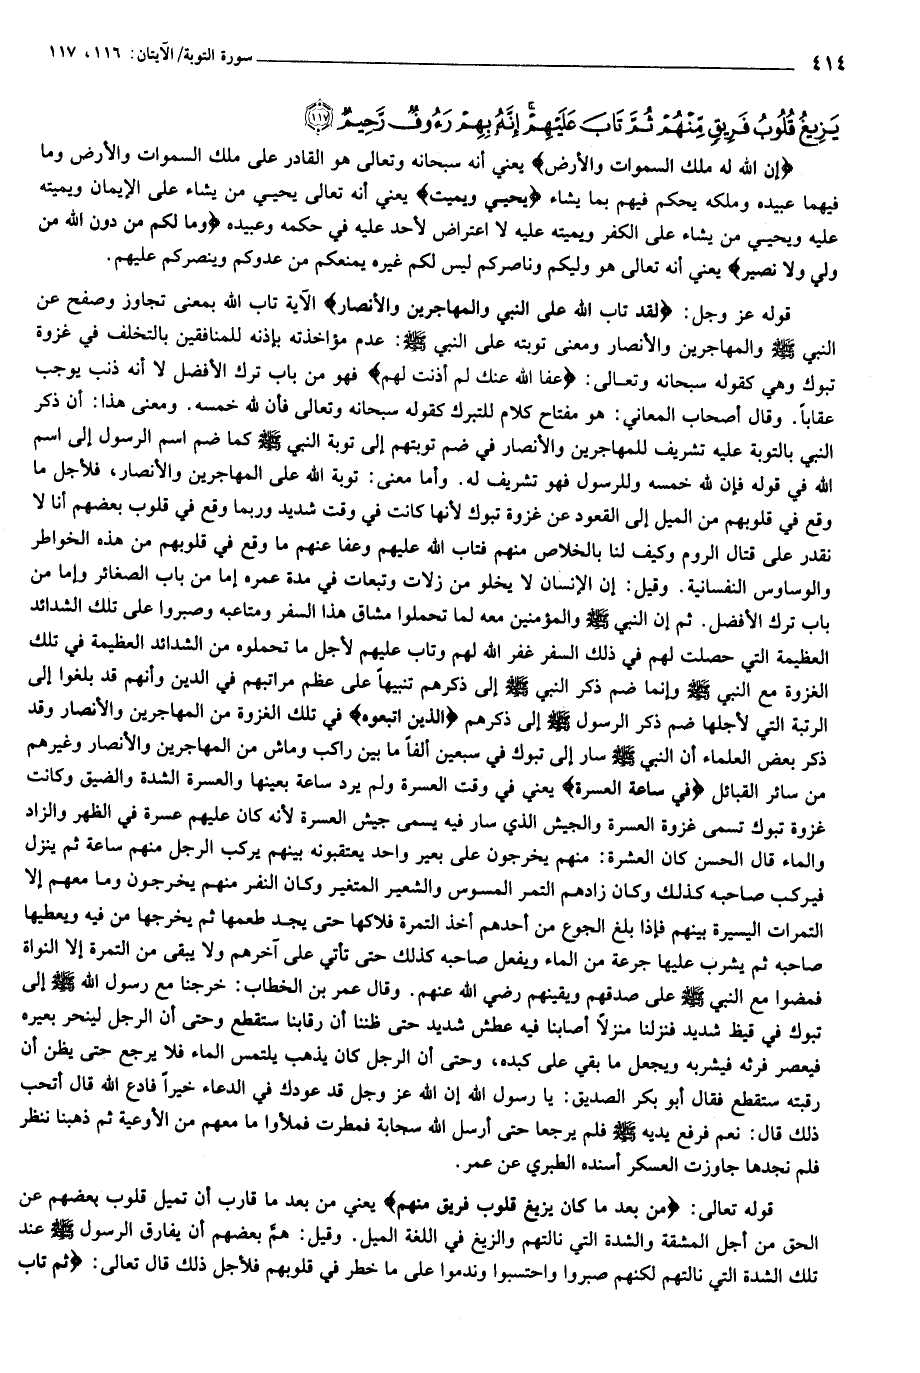 ٤١٤ سورة التوبة/ الآيتان: ١١٦، ١١٧
يَزِيغُ قُلُوبُ فَرِيقٍ مِّنْهُمْ ثُمَّ تَابَ عَلَيْهِمْ إِنَّهُ بِهِمْ رَءُوفٌ رَّحِيمٌ ﴿١١٧﴾
﴿إن الله له ملك السموات والأرض﴾ يعني أنه سبحانه وتعالى هو القادر على ملك السموات والأرض وما
فيهما عبيده وملكه يحكم فيهم بما يشاء ﴿يحيـي ويميت﴾ يعني أنه تعالى يحيـي من يشاء على الإيمان ويميته
عليه ويحيـي من يشاء على الكفر ويميته عليه لا اعتراض لأحد عليه في حكمه وعبيده ﴿وما لكم من دون الله من
ولي ولا نصير﴾ يعني أنه تعالى هو وليكم وناصركم ليس لكم غيره يمنعكم من عدوكم وينصركم عليهم.
قوله عز وجل: ﴿لقد تاب الله على النبي والمهاجرين والأنصار﴾ الآية تاب الله بمعنى تجاوز وصفح عن
النبي ﷺ والمهاجرين والأنصار ومعنى توبته على النبي ﷺ: عدم مؤاخذته بإذنه للمنافقين بالتخلف في غزوة
تبوك وهي كقوله سبحانه وتعـالى: ﴿عفا الله عنك لم أذنت لهم﴾ فهو من باب ترك الأفضل لا أنه ذنب يوجب
عقاباً. وقال أصحاب المعاني: هو مفتاح كلام للتبرك كقوله سبحانه وتعالى فأن لله خمسه. ومعنى هذا: أن ذكر
النبي بالتوبة عليه تشريف للمهاجرين والأنصار في ضم توبتهم إلى توبة النبي ﷺ كما ضم اسم الرسول إلى اسم
الله في قوله فإن لله خمسه وللرسول فهو تشريف له. وأما معنى: توبة الله على المهاجرين والأنصار، فلأجل ما
وقع في قلوبهم من الميل إلى القعود عن غزوة تبوك لأنها كانت في وقت شديد وربما وقع في قلوب بعضهم أنا لا
نقدر على قتال الروم وكيف لنا بالخلاص منهم فتاب الله عليهم وعفا عنهم ما وقع في قلوبهم من هذه الخواطر
والوساوس النفسانية. وقيل: إن الإنسان لا يخلو من زلات وتبعات في مدة عمره إما من باب الصغائر وإما من
باب ترك الأفضل. ثم إن النبي ﷺ والمؤمنين معه لما تحملوا مشاق هذا السفر ومتاعبه وصبروا على تلك الشدائد
العظيمة التي حصلت لهم في ذلك السفر غفر الله لهم وتاب عليهم لأجل ما تحملوه من الشدائد العظيمة في تلك
الغزوة مع النبي ﷺ وإنما ضم ذكر النبي ﷺ إلى ذكرهم تنبيهاً على عظم مراتبهم في الدين وأنهم قد بلغوا إلى
الرتبة التي لأجلها ضم ذكر الرسول ﷺ إلى ذكرهم ﴿الذين اتبعوه﴾ في تلك الغزوة من المهاجرين والأنصار وقد
ذكر بعض العلماء أن النبي ﷺ سار إلى تبوك في سبعين ألفاً ما بين راكب وماش من المهاجرين والأنصار وغيرهم
من سائر القبائل ﴿في ساعة العسرة﴾ يعني في وقت العسرة ولم يرد ساعة بعينها والعسرة الشدة والضيق وكانت
غزوة تبوك تسمى غزوة العسرة والجيش الذي سار فيه يسمى جيش العسرة لأنه كان عليهم عسرة في الظهر والزاد
والماء قال الحسن كان العشرة: منهم يخرجون على بعير واحد يعتقبونه بينهم يركب الرجل منهم ساعة ثم ينزل
فيركب صاحبه كذلك وكان زادهم التمر المسوس والشعير المتغير وكان النفر منهم يخرجون وما معهم إلا
التمرات اليسيرة بينهم فإذا بلغ الجوع من أحدهم أخذ التمرة فلاكها حتى يجـد طعمها ثم يخرجها من فيه ويعطيها
صاحبه ثم يشرب عليها جرعة من الماء ويفعل صاحبه كذلك حتى تأتي على آخرهم ولا يبقى من التمرة إلا النواة
فمضوا مع النبي ﷺ على صدقهم ويقينهم رضي الله عنهم. وقال عمر بن الخطاب: خرجنا مع رسول الله ﷺ إلى
تبوك في قيظ شديد فنزلنا منزلاً أصابنا فيه عطش شديد حتى ظننا أن رقابنا ستقطع وحتى أن الرجل لينحر بعيره
فيعصر فرثه فيشربه ويجعل ما بقي على كبده، وحتى أن الرجل كان يذهب يلتمس الماء فلا يرجع حتى يظن أن
رقبته ستقطع فقال أبو بكر الصديق: يا رسول الله إن الله عز وجل قد عودك في الدعاء خيراً فادع الله قال أتحب
ذلك قال: نعم فرفع يديه ﷺ فلم يرجعا حتى أرسل الله سحابة فمطرت فملأوا ما معهم من الأوعية ثم ذهبنا ننظر
فلم نجدها جاوزت العسكر أسنده الطبري عن عمر.
قوله تعالى: ﴿من بعد ما كان يزيغ قلوب فريق منهم﴾ يعني من بعد ما قارب أن تميل قلوب بعضهم عن
الحق من أجل المشقة والشدة التي نالتهم والزيغ في اللغة الميل. وقيل: همَّ بعضهم أن يفارق الرسول ﷺ عند
تلك الشدة التي نالتهم لكنهم صبروا واحتسبوا وندموا على ما خطر في قلوبهم فلأجل ذلك قال تعالى: ﴿ثم تاب